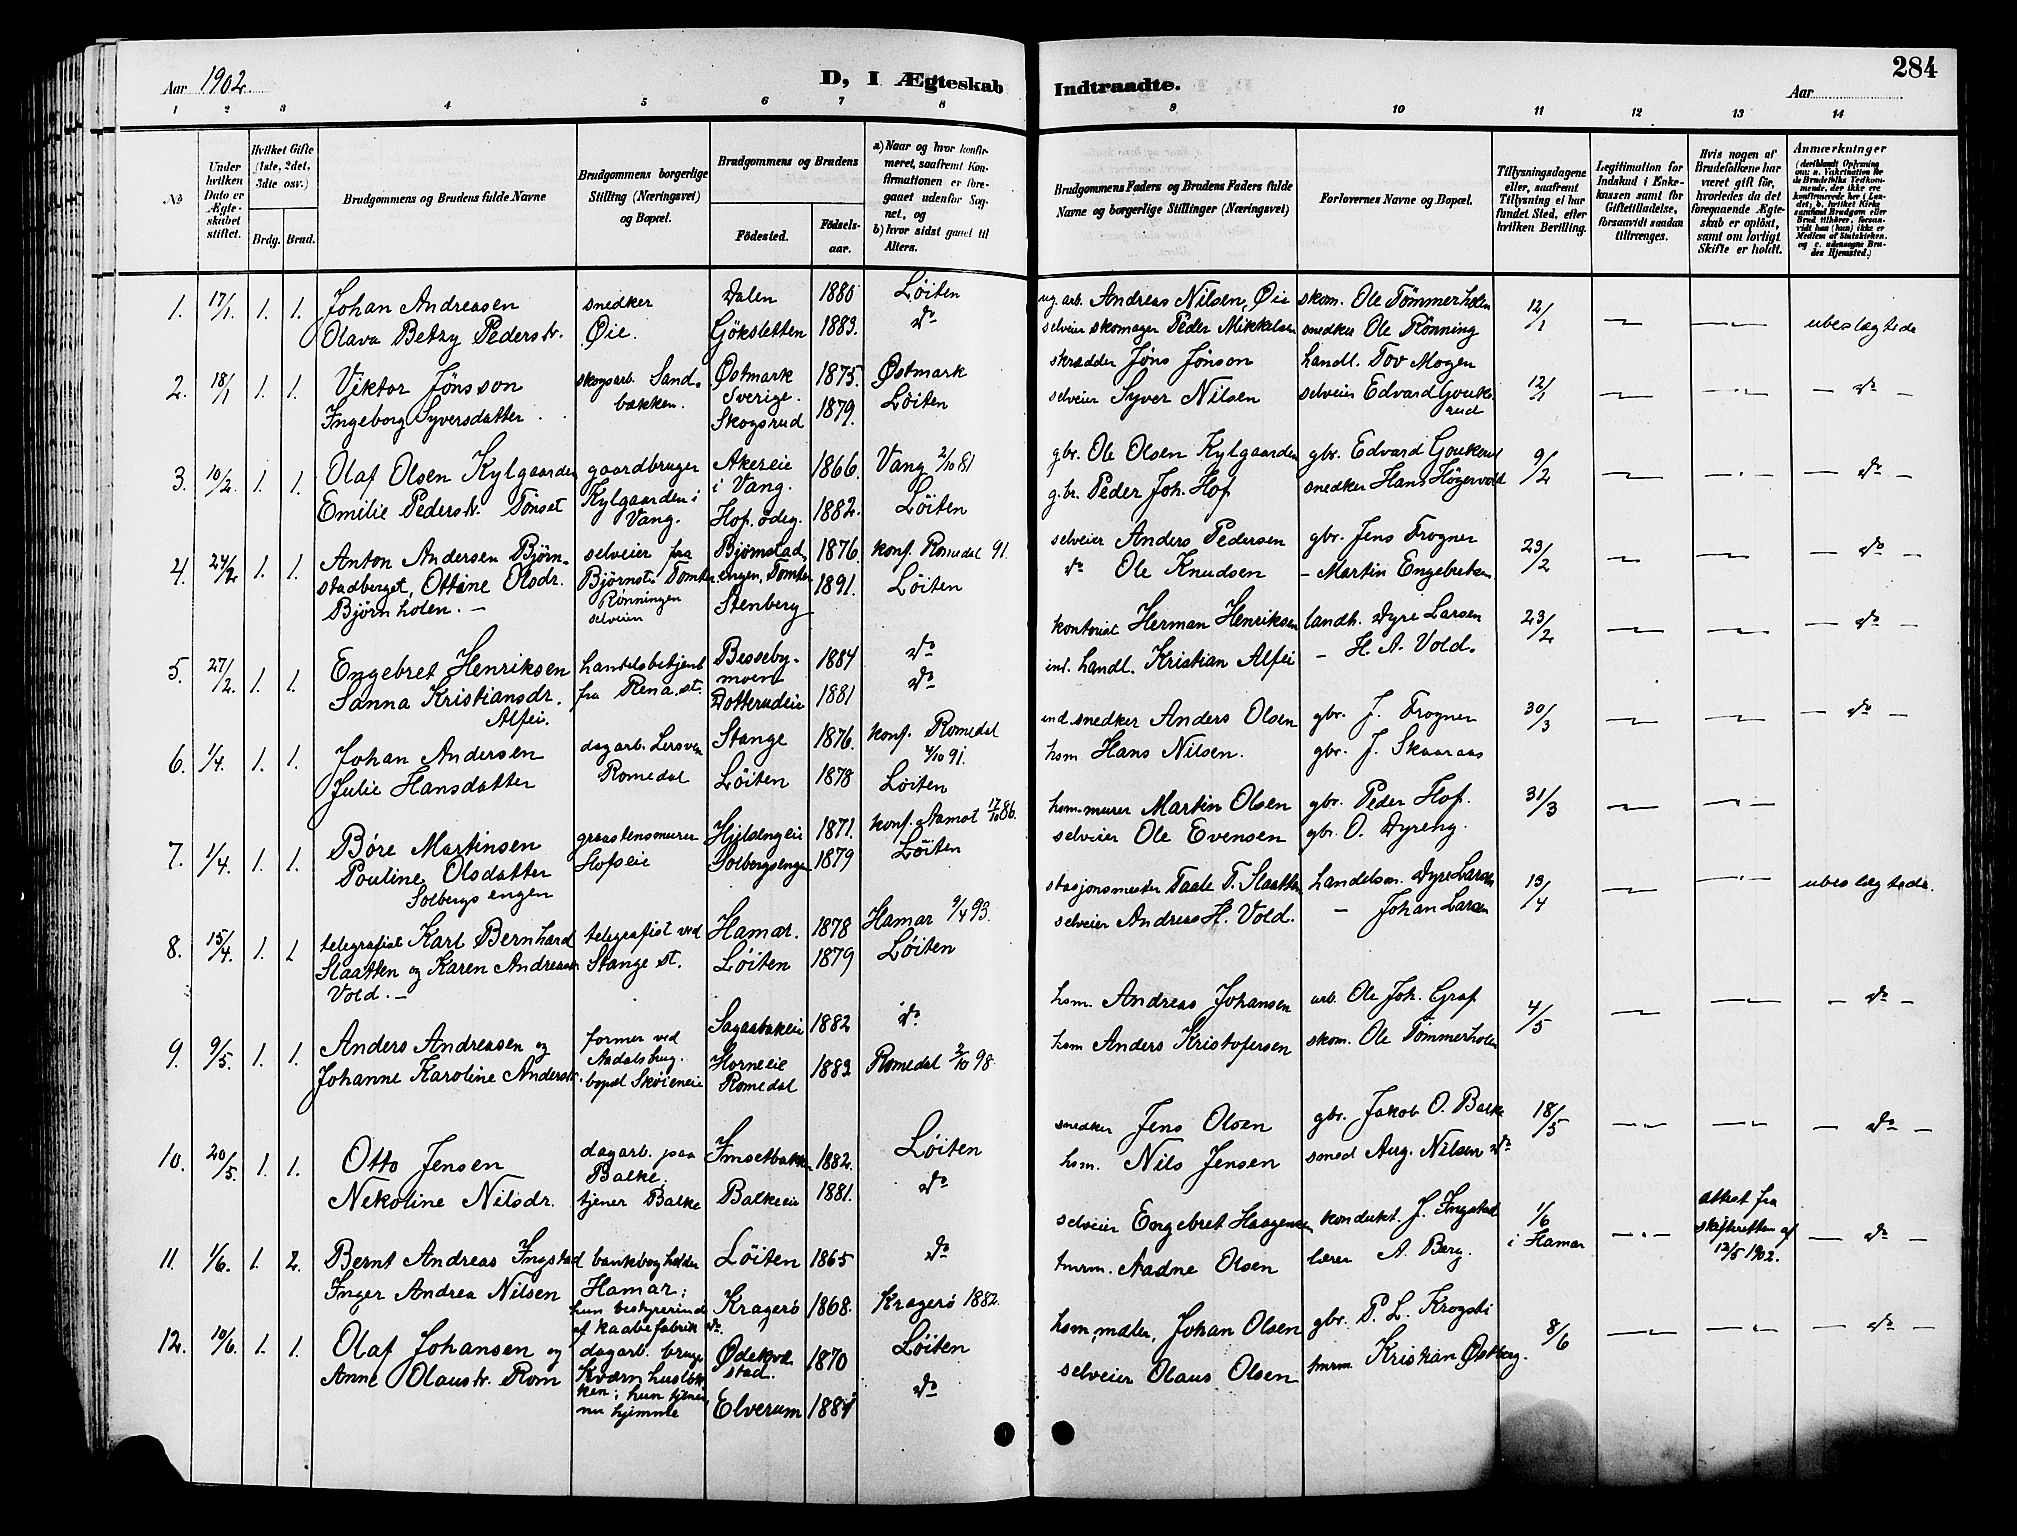 Aar 1902.
D, I Ægteskab
Indtraadte.
284
Aar
1 2 3 4 5 6 7 8
9 10 11 12 13 14
No
Under hvilken Dato er Ægteskabet stiftet.
Hvilket Gifte (1ste, 2det, 3die osv.)
Brdg. Brud.
Brudgommens og Brudens fulde Navne
Brudgommens borgerlige Stilling (Næringsvei) og Bopæl.
Brudgommens og Brudens
Födested. Födselsaar.
a) Naar og hvor konfirmeret, saafremt Konfirmationen er foregaaet udenfor Sognet, og
b) hvor sidst gaaet til Alters.
Brudgommens Faders og Brudens Faders fulde Navne og borgerlige Stillinger (Næringsvei)
Forlovernes Navne og Bopæl.
Tillysningsdagene eller, saafremt Tillysning ei har fundet Sted, efter hvilken Bevilling.
Legitimation for Indskud i Enkekassen samt for Giftetilladelse, forsaavidt saadan tiltrænges.
Hvis nogen af Brudefolkene har været gift för, hvorledes da det foregaaende Ægteskab er oplöst, samt om lovligt Skifte er holdt.
Anmærkninger
1. 17/1 1. 1. Johan Andreasen snedker Dalen 1880 Löiten
Olava Betzy Pedersdr. Öie. Göksletten 1883. do
arb. Andreas Nilsen, Öie skom. Ole Tömmerholen 12/1
selveier skomager Peder Mikkelsen snedker Ole Rönning ubeslægtede
2. 18/1 1. 1. Viktor Jönsson skogsarb. Sandbækken. Östmark Sverige. 1875. Östmark
Ingeborg Syversdatter Skogsrud 1879. Löiten
skrædder Jöns Jönson handl. Tov Mogen
selveier Syver Nilsen selveier Edvard Goukerud 12/1 do
3. 10/2 1. 1. Olaf Olsen Kylgaarden gaardbruger Akereie i Vang. 1866. Vang 2/10 81
Emilie Pedersdr. Tönset Kylgaarden i Vang. Hof. ödeg. 1882. Löiten
gbr. Ole Olsen Kylgaarden gbr. Edvard Goukerud 9/2
g.br. Peder Joh. Hof snedker Hans Högervold do
4. 24/2 1. 1. Anton Andersen Björnstadberget, Ottine Olsdr. Björnholen. selveier fra Björnst. Tomter. Rönningen selveien Björnstadengen, Tomter 1876. konf. Romedal 91.
Stenberg 1891. Löiten
selveier Anders Pedersen gbr. Jens Frogner 23/2
do Ole Knudsen – Martin Engebretsen do
5. 27/2. 1. 1. Engebret Henriksen handelsbetjent Bessebymoen 1884 do
Sanna Kristiansdr. Alfei. fra Rena st. Dotterudeie 1881 do
kontorist Herman Henriksen landh. Dyre Larsen 23/2
handl. Kristian Alfei – H. A. Vold. do
6. 1/4. 1. 1. Johan Andersen dagarb. Romedal Stange 1876. konf. Romedal 4/10 91.
Julie Hansdatter Löiten 1878 Löiten
snedker Anders Olsen gbr. J. Frogner 30/3
hsm Hans Nilsen. gbr. J. Skaaraas do
7. 1/4. 1. 1. Böre Martinsen graastensmurer Hjeldengeie 1871. konf. Aamot 17/10 86.
Pouline Olsdatter Solbergsengen Hofseie Solbergsengen 1879 Löiten
hsm. murer Martin Olsen gbr. Peder Hof. 31/3
selveier Ole Evensen gbr. O. Dyreng.
8. 15/4. 1. 1 telegrafist Karl Bernhard telegrafist ved Hamar. 1878 Hamar 9/4 93.
Slaatten og Karen Andreasdr. Vold. Stange st. Löiten 1879 Löiten
stasjonsmester Taale T. Slaatten handelsm. Dyre Larsen 13/4
selveier Andreas H. Vold. – Johan Larsen ubeslægtede.
9. 9/5. 1. 1. Anders Andreasen og former ved Aadalsbrug. Sagaabakeie 1882 do
Johanne Karoline Andersdr. bopæl Sköieneie Horneeie Romedal 1883 Romedal 2/10 98.
hsm. Andreas Johansen arb. Ole Joh. Graf 4/5
hsm Anders Kristofersen skom. Ole Tömmerholen do
10. 20/5. 1. 1. Otto Jensen dagarb. paa Balke. Imsetbakken 1882. Löiten
Nekoline Nilsdr. tjener Balke Balkeeie 1881. do
snedker Jens Olsen gbr. Jakob O. Balke 18/5
hsm. Nils Jensen smed Aug. Nilsen do do
11. 1/6. 1. 2. Bernt Andreas Ingstad bankbogholder Hamar; Löiten 1865 do
Inger Andrea Nilsen hun bestyrerinde af kaabefabrik do. Kragerö 1868. Kragerö 1882.
selveier Engebret Haagensen kondukt. J. Ingstad 1/6 i Hamar
tmrm. Aadne Olsen lærer A. Berg. attest fra skifteretten af 12/5 1902. do
12. 10/6. 1. 1. Olaf Johansen og dagarb. bruge Ödekvestad. 1870 Löiten
Anne Olausdr. Rom hun tjener nu hjemme Elverum 1884 do
hsm, maler, Johan Olsen gbr. P. L. Krogsti 8/6
selveier Olaus Olsen tmrm Kristian Östberg. do